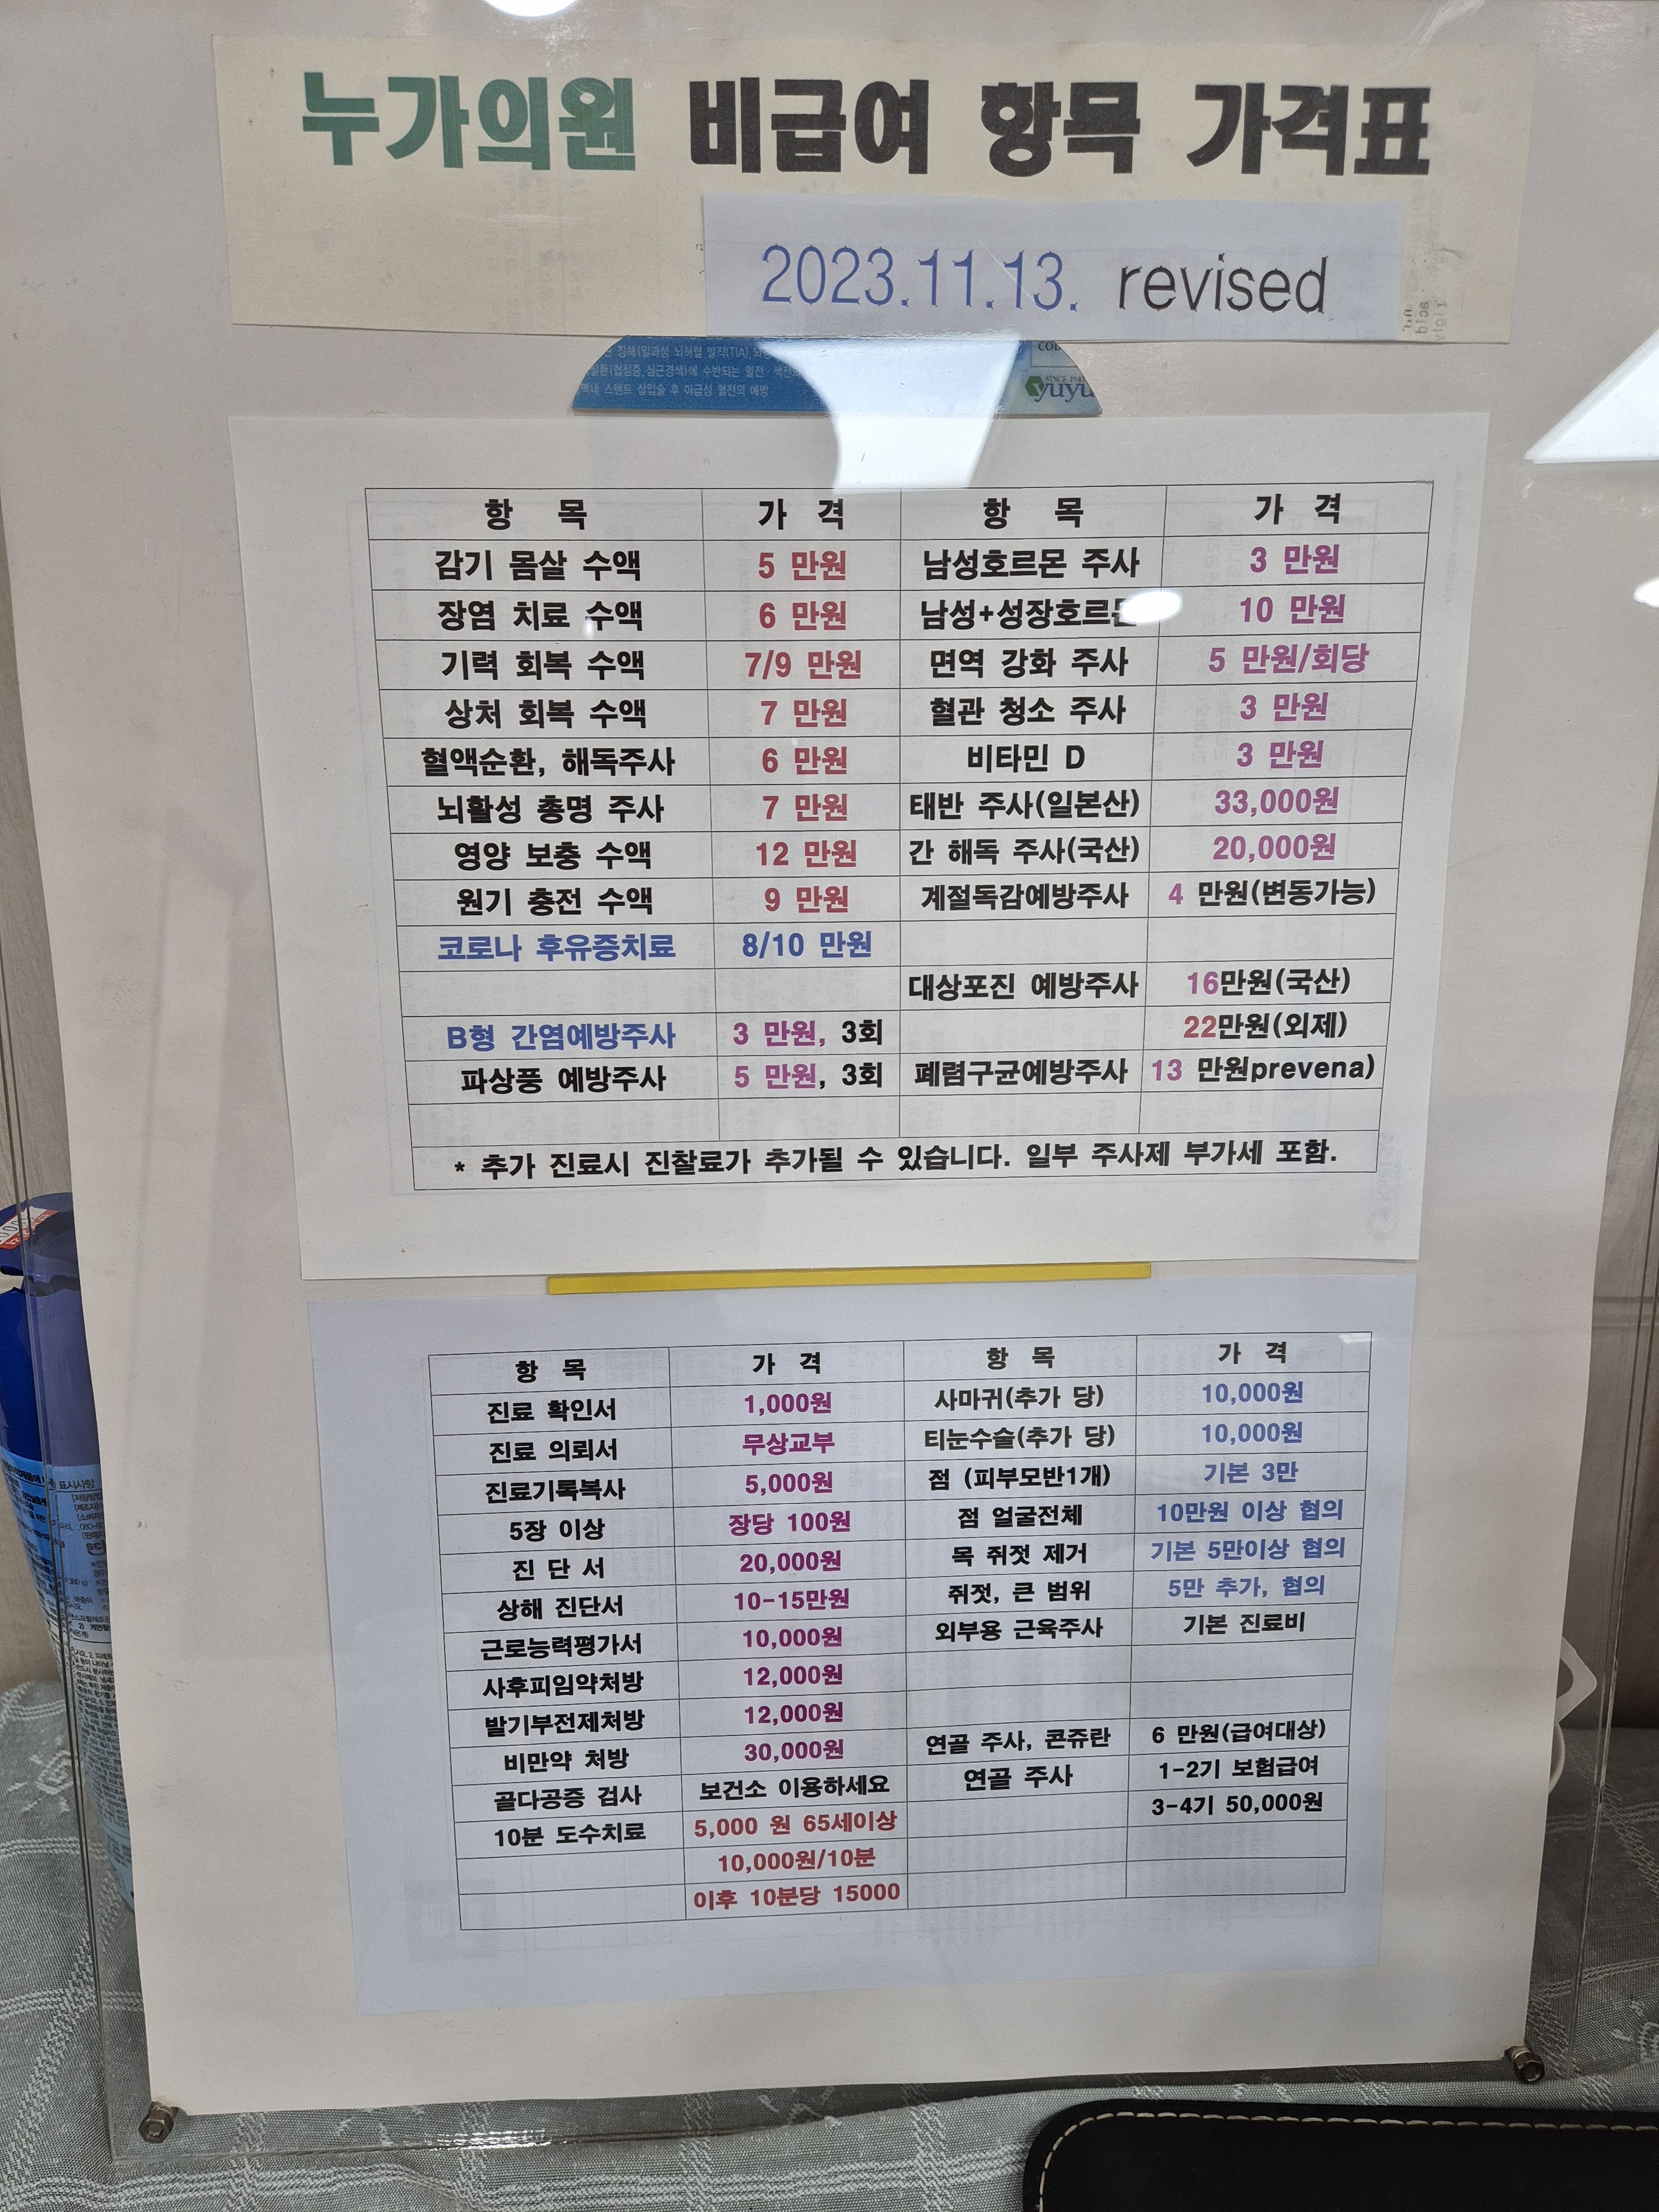 누가의원 비급여 항목 가격표
2023.11.13. revised
장해(일과성 뇌허혈 발작(TIA),
질환(협심증, 심근경색)에 수반되는 혈전·
스텐트 삽입술 후 아급성 혈전의 예방
SINCE 1941
yuyu
항 목 가 격 항 목 가 격
감기 몸살 수액 5 만원 남성호르몬 주사 3 만원
장염 치료 수액 6 만원 남성+성장호르몬 10 만원
기력 회복 수액 7/9 만원 면역 강화 주사 5 만원/회당
상처 회복 수액 7 만원 혈관 청소 주사 3 만원
혈액순환, 해독주사 6 만원 비타민 D 3 만원
뇌활성 총명 주사 7 만원 태반 주사(일본산) 33,000원
영양 보충 수액 12 만원 간 해독 주사(국산) 20,000원
원기 충전 수액 9 만원 계절독감예방주사 4 만원(변동가능)
코로나 후유증치료 8/10 만원
대상포진 예방주사 16만원(국산)
B형 간염예방주사 3 만원, 3회 22만원(외제)
파상풍 예방주사 5 만원, 3회 폐렴구균예방주사 13 만원prevena)
* 추가 진료시 진찰료가 추가될 수 있습니다. 일부 주사제 부가세 포함.
항 목 가 격 항 목 가 격
진료 확인서 1,000원 사마귀(추가 당) 10,000원
진료 의뢰서 무상교부 티눈수술(추가 당) 10,000원
진료기록복사 5,000원 점 (피부모반1개) 기본 3만
5장 이상 장당 100원 점 얼굴전체 10만원 이상 협의
진 단 서 20,000원 목 쥐젓 제거 기본 5만이상 협의
상해 진단서 10-15만원 쥐젓, 큰 범위 5만 추가, 협의
근로능력평가서 10,000원 외부용 근육주사 기본 진료비
사후피임약처방 12,000원
발기부전제처방 12,000원
비만약 처방 30,000원 연골 주사, 콘쥬란 6 만원(급여대상)
골다공증 검사 보건소 이용하세요 연골 주사 1-2기 보험급여
10분 도수치료 5,000 원 65세이상 3-4기 50,000원
10,000원/10분
이후 10분당 15000